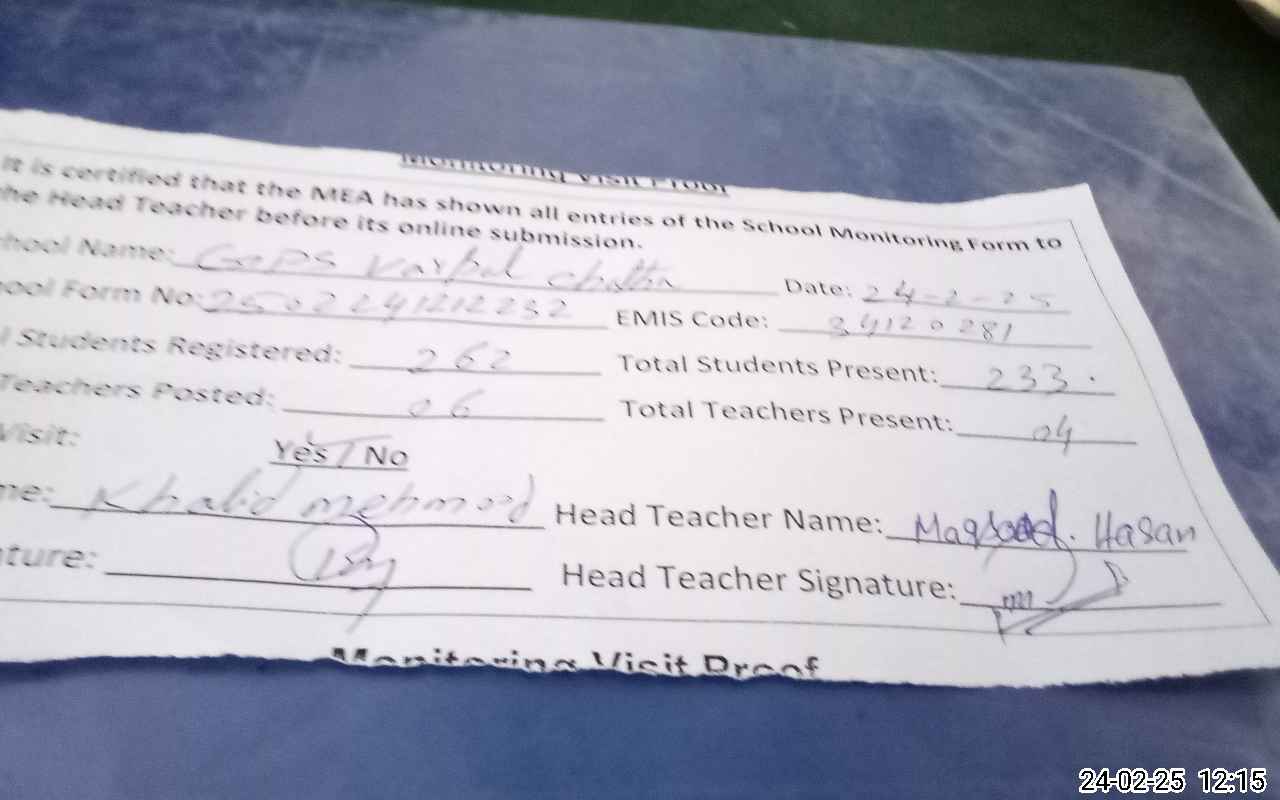 Monitoring Visit Proof
It is certified that the MEA has shown all entries of the School Monitoring Form to
he Head Teacher before its online submission.
hool Name: GGPS Chatha Date: 24-2-25
ool Form No: 2502241212232 EMIS Code: 34120281
l Students Registered: 262 Total Students Present: 233.
Teachers Posted: 06 Total Teachers Present: 04
Visit: Yes / No
me: Khalid mehmood Head Teacher Name: Maqsood. Hasan
ature: Head Teacher Signature:
Monitoring Visit Proof
24-02-25 12:15